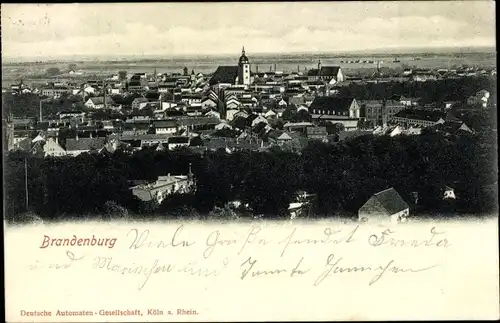 Brandenburg
Viele Grüße sendet Frieda
und Mariechen und Tante Jannchen
Deutsche Automaten-Gesellschaft, Köln a. Rhein.